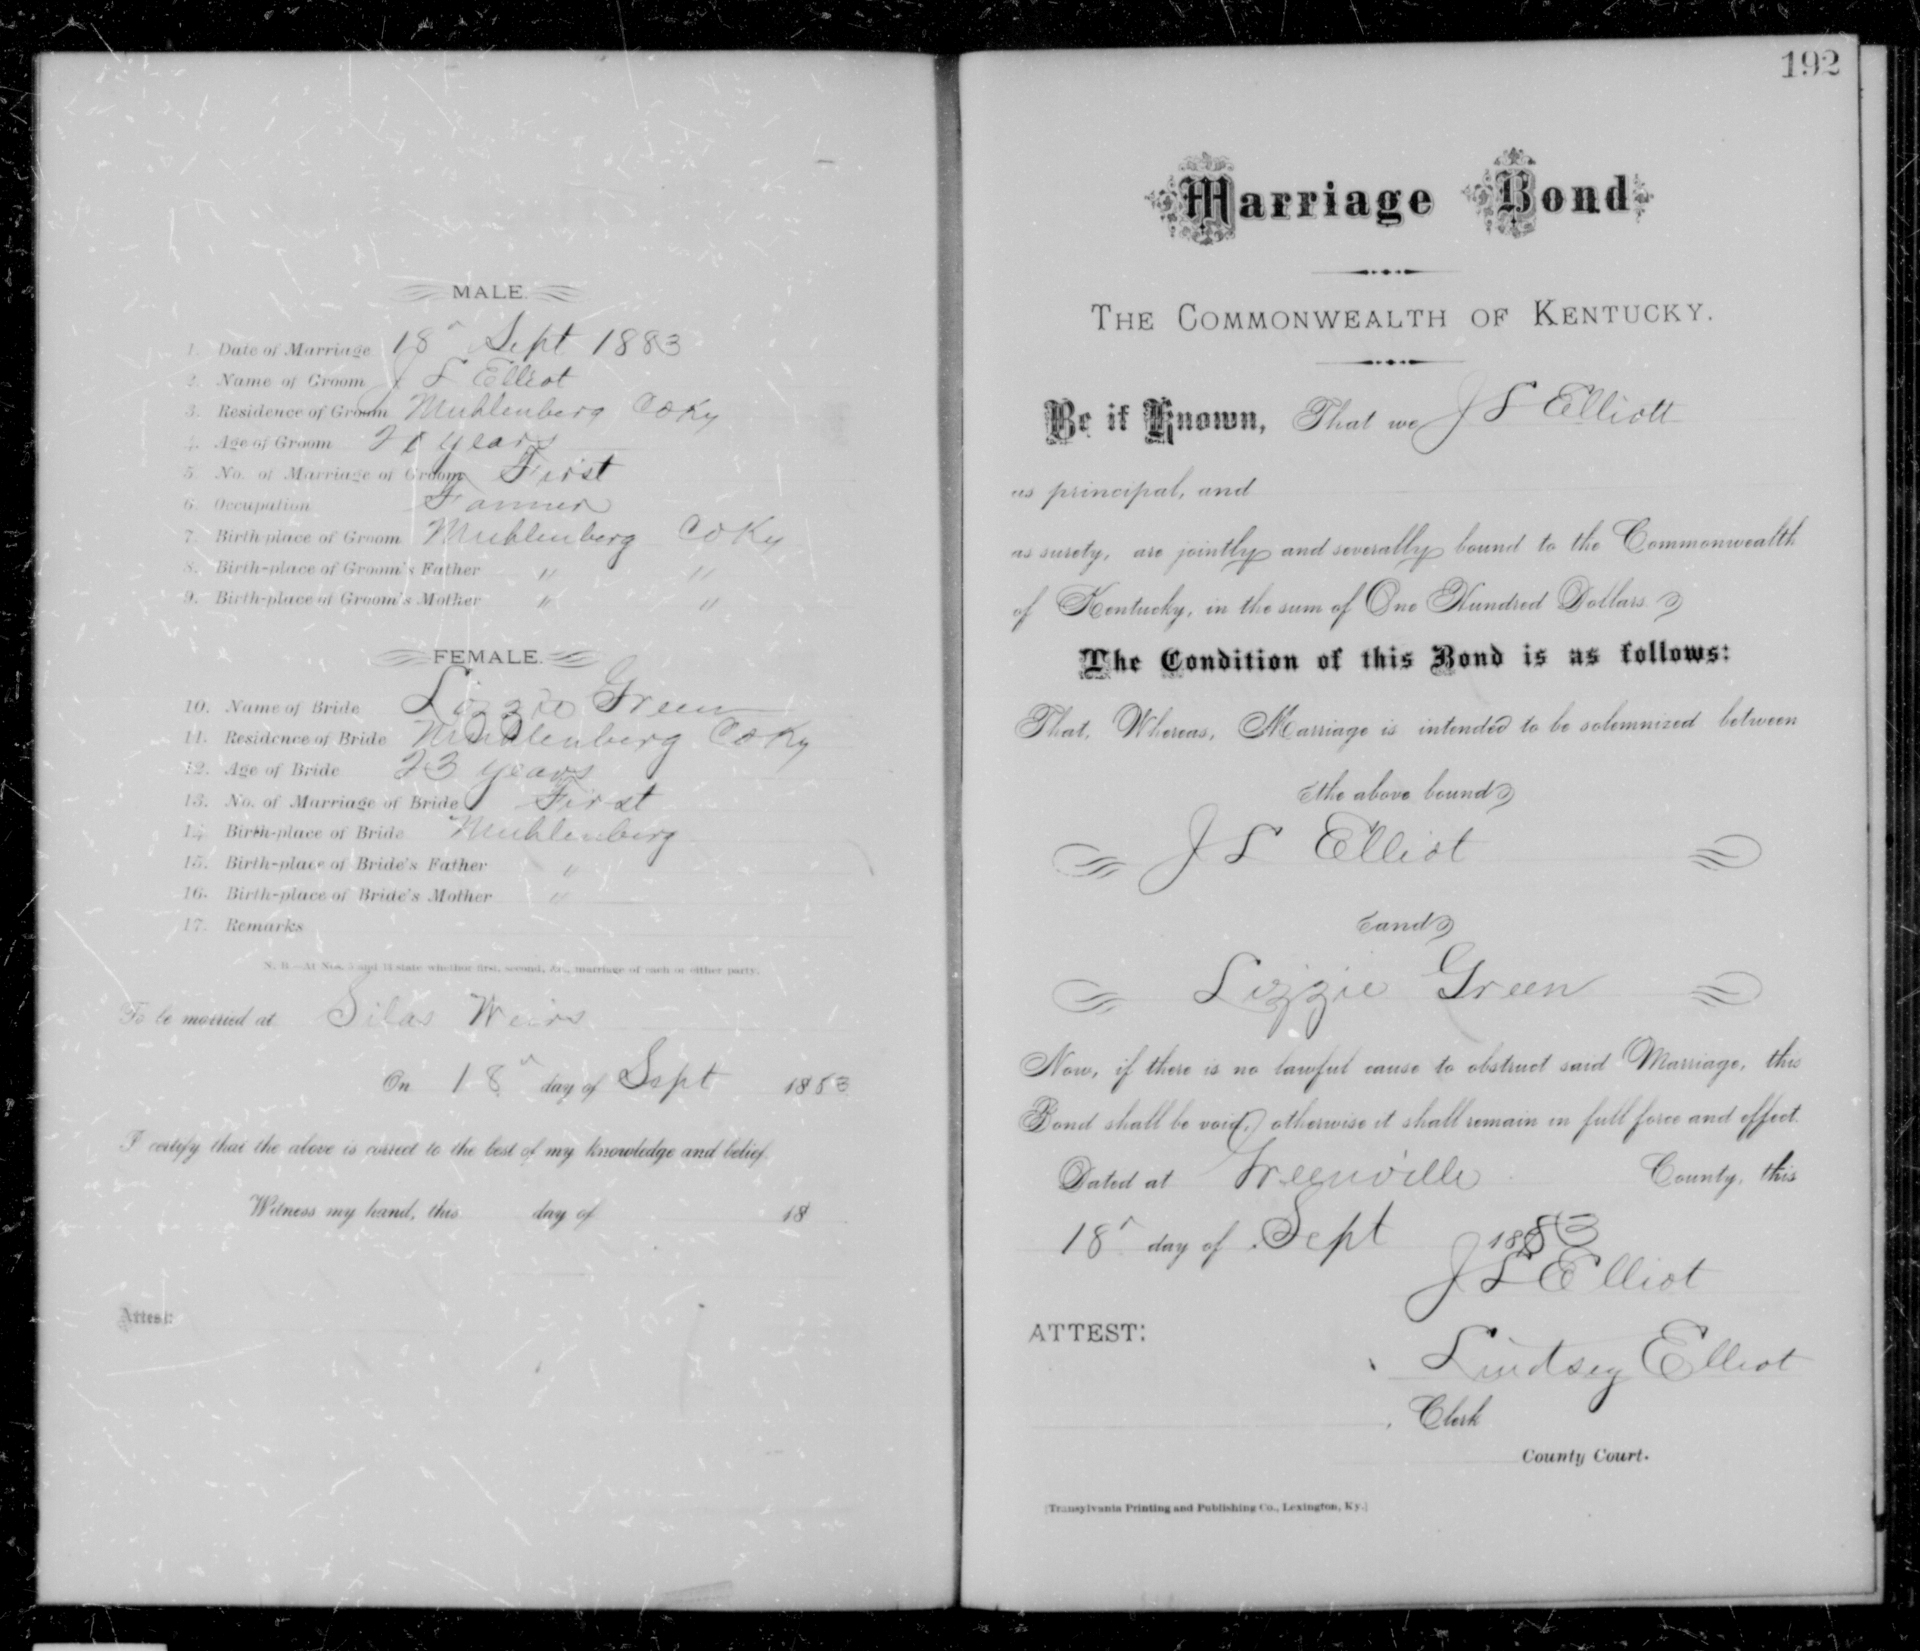 MALE.
1. Date of Marriage 18" Sept 1883
2. Name of Groom J S Elliot
3. Residence of Groom Muhlenberg Co Ky
4. Age of Groom 21 years
5. No. of Marriage of Groom First
6. Occupation Farmer
7. Birth-place of Groom Muhlenberg Co Ky
8. Birth-place of Groom's Father " "
9. Birth-place of Groom's Mother " "
FEMALE.
10. Name of Bride Lizzie Green
11. Residence of Bride Muhlenberg Co Ky
12. Age of Bride 23 years
13. No. of Marriage of Bride First
14. Birth-place of Bride Muhlenberg
15. Birth-place of Bride's Father "
16. Birth-place of Bride's Mother "
17. Remarks
N. B.—At Nos. 5 and 13 state whether first, second, &c., marriage of each or either party.
To be married at Silas Weirs
On 18" day of Sept 1883
I certify that the above is correct to the best of my knowledge and belief.
Witness my hand, this day of 18
Attest:
192
Marriage Bond
THE COMMONWEALTH OF KENTUCKY.
Be it Known, That we J S Elliott
as principal, and
as surety, are jointly and severally bound to the Commonwealth
of Kentucky, in the sum of One Hundred Dollars.
The Condition of this Bond is as follows:
That, Whereas, Marriage is intended to be solemnized between
the above bound
J S Elliot
and
Lizzie Green
Now, if there is no lawful cause to obstruct said Marriage, this
Bond shall be void, otherwise it shall remain in full force and effect.
Dated at Greenville County, this
18" day of Sept 1883
J S Elliot
ATTEST:
Lindsey Elliot
Clerk
County Court.
[Transylvania Printing and Publishing Co., Lexington, Ky.]